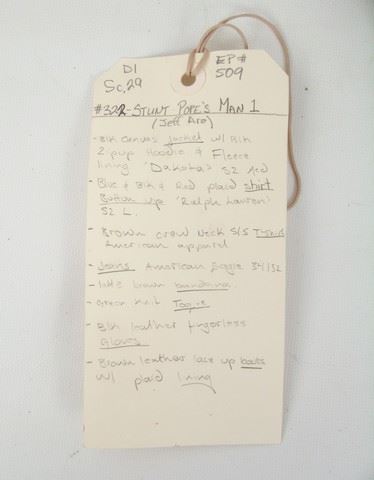 D1
Sc. 29
EP#
509
#322 - STUNT POPE'S MAN 1
(Jeff Aro)
- Blk canvas jacket w/ Blk
2 pup Hoodie & Fleece
lining 'Dakota' SZ Med
- Blue & Blk & Red plaid shirt
Button up 'Ralph Lauren'
SZ L.
- Brown crew neck S/S T-shirt
American apparel
- Jeans American Eagle 34/32
- little brown bandana
- Green knit Toque
- Blk leather fingerless
Gloves
- Brown leather lace up boots
w/ plaid lining